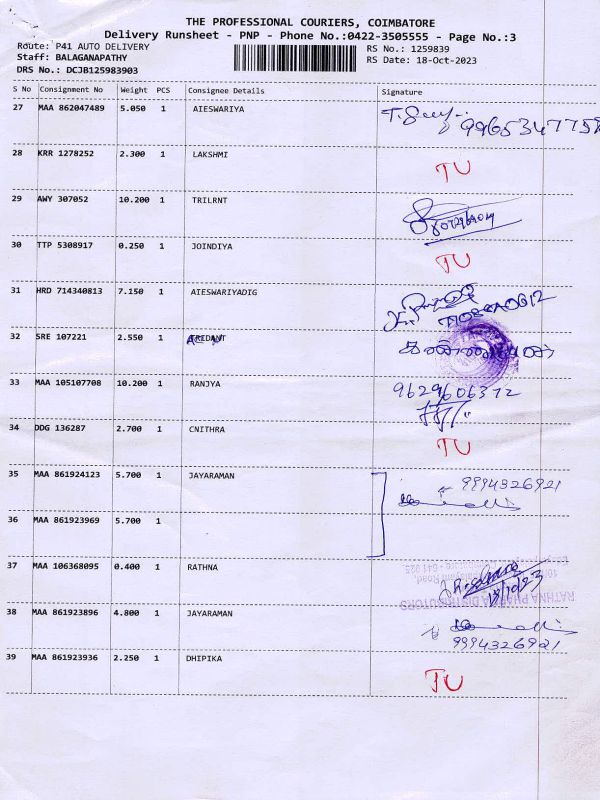 THE PROFESSIONAL COURIERS, COIMBATORE
Delivery Runsheet - PNP - Phone No.:0422-3505555 - Page No.:3
Route: P41 AUTO DELIVERY
RS No.: 1259839
Staff: BALAGANAPATHY
RS Date: 18-Oct-2023
DRS No.: DCJB125983903
S No Consignment No Weight PCS Consignee Details Signature
27 MAA 862047489 5.050 1 AIESWARIYA
28 KRR 1278252 2.300 1 LAKSHMI TU
29 AWY 307052 10.200 1 TRILRNT
30 TTP 5308917 0.250 1 JOINDIYA TU
31 HRD 714340813 7.150 1 AIESWARIYADIG
32 SRE 107221 2.550 1
33 MAA 105107708 10.200 1 RANJYA 9629606372
34 DDG 136287 2.700 1 CNITHRA TU
35 MAA 861924123 5.700 1 JAYARAMAN 9994326921
36 MAA 861923969 5.700 1
37 MAA 106368095 0.400 1 RATHNA 18/10/23
RATHNA PHARMA DISTRIBUTORS
38 MAA 861923896 4.800 1 JAYARAMAN 9994326921
39 MAA 861923936 2.250 1 DHIPIKA TU